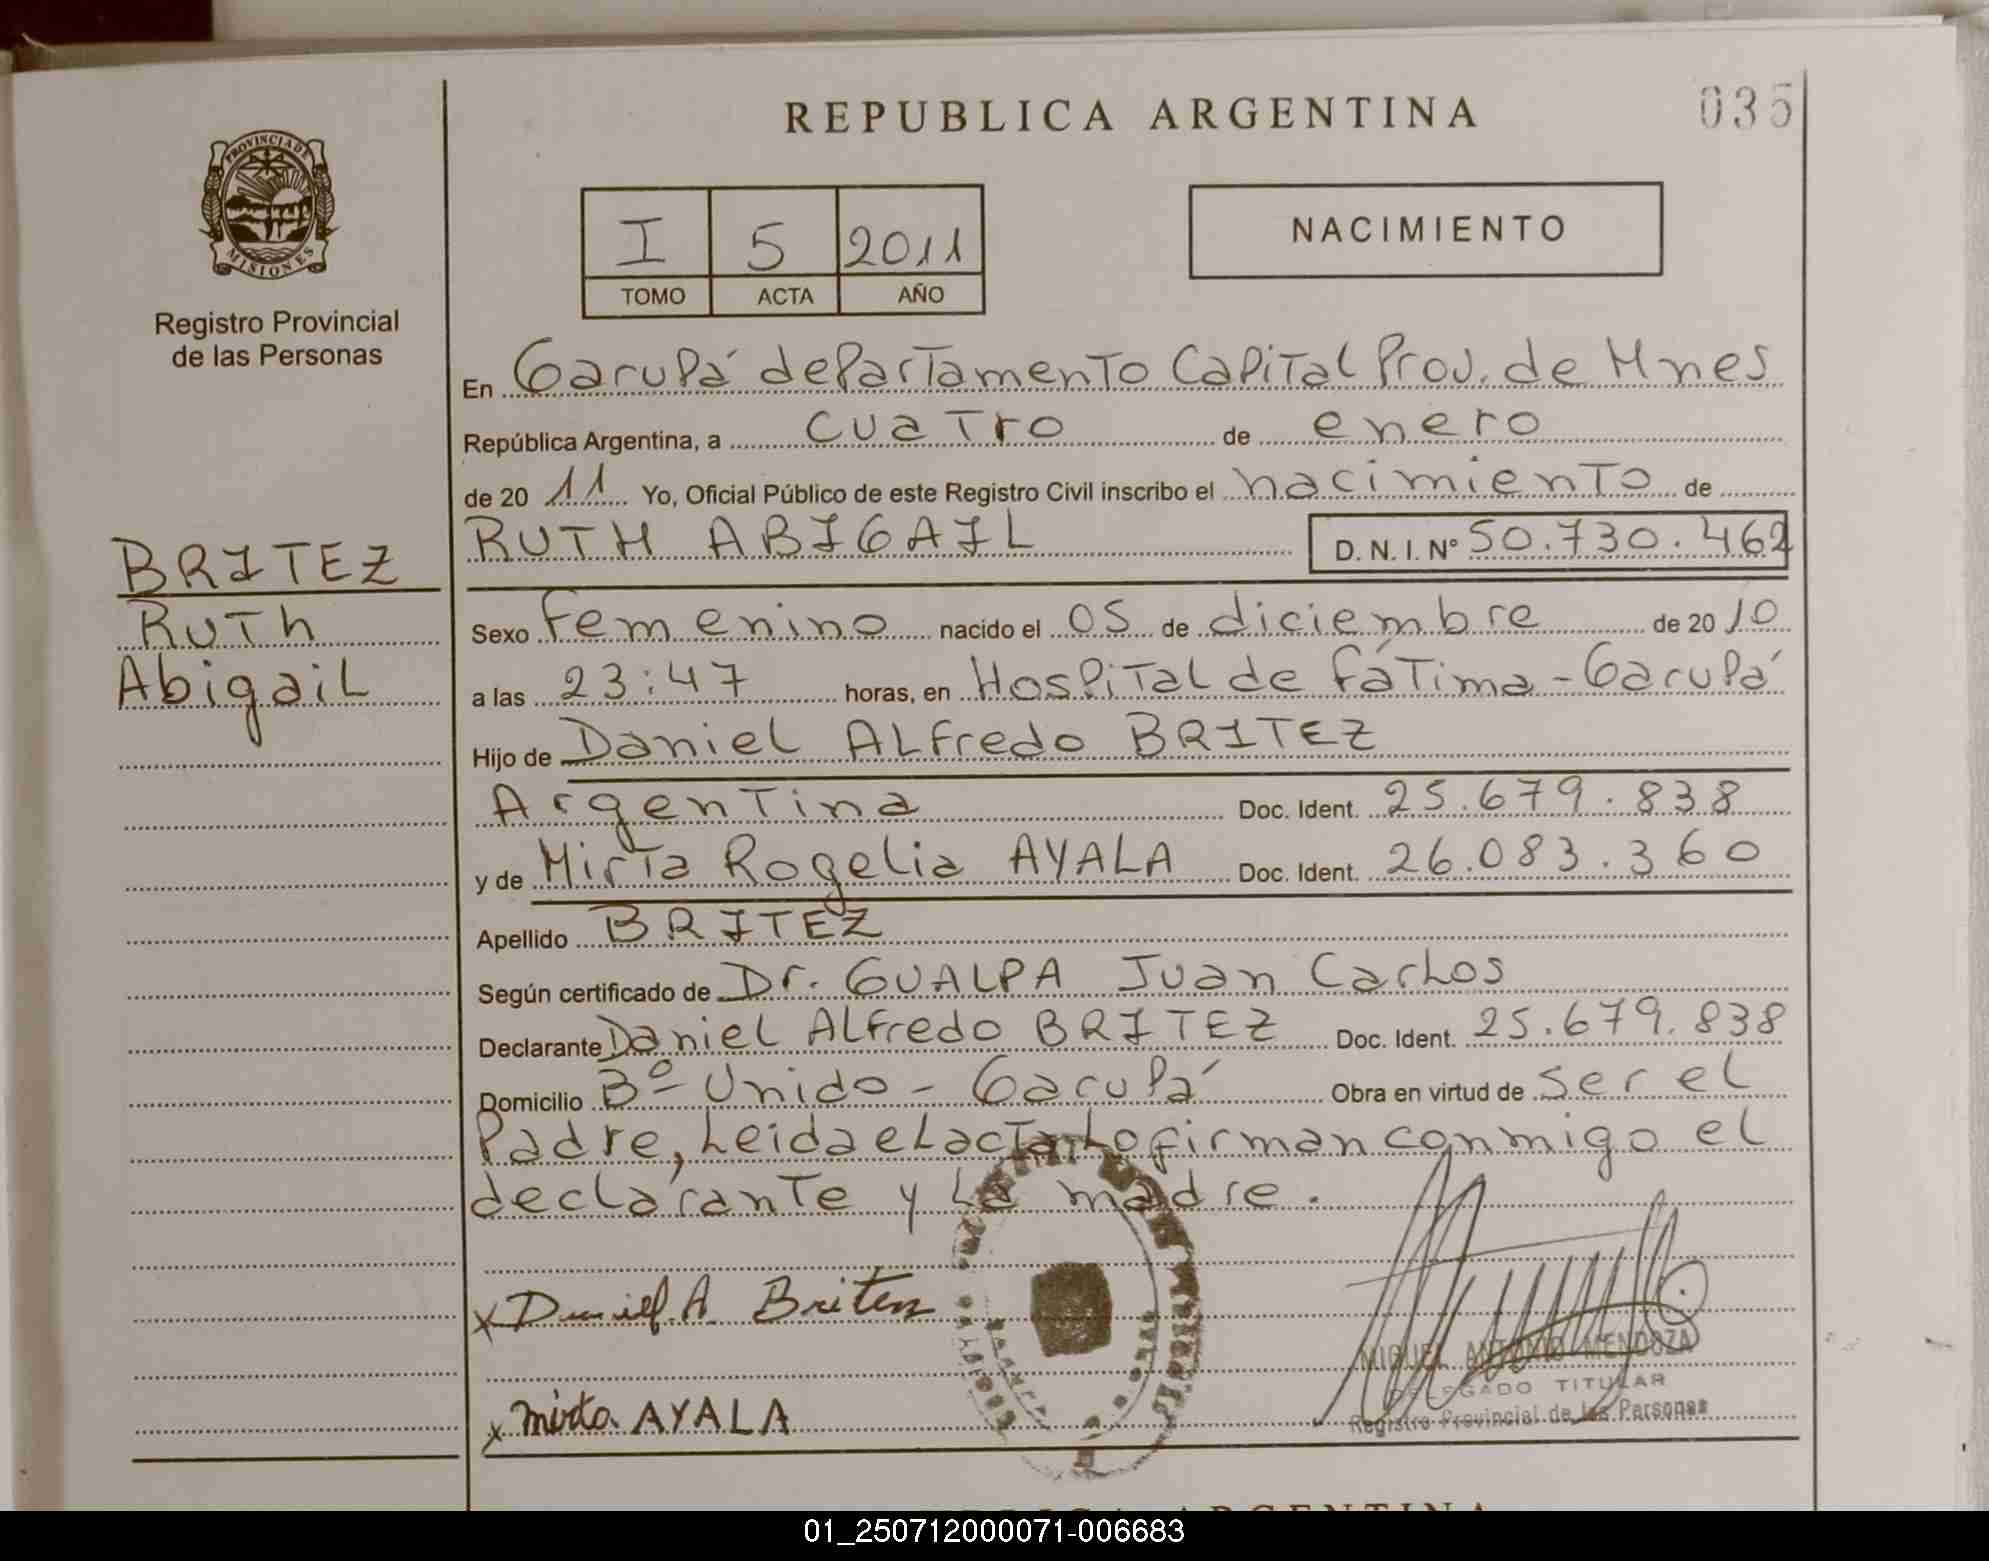 REPUBLICA ARGENTINA
035
PROVINCIA DE
MISIONES
Registro Provincial
de las Personas
I 5 2011
TOMO ACTA AÑO
NACIMIENTO
En Garupá departamento Capital Prov. de Mnes
República Argentina, a cuatro de enero
de 2011 Yo, Oficial Público de este Registro Civil inscribo el nacimiento de
RUTH ABIGAIL D. N. I. Nº 50.730.462
BRITEZ
Ruth
Abigail
Sexo Femenino nacido el 05 de diciembre de 2010
a las 23:47 horas, en Hospital de Fátima - Garupá
Hijo de Daniel Alfredo BRITEZ
Argentina Doc. Ident. 25.679.838
y de Mirta Rogelia AYALA Doc. Ident. 26.083.360
Apellido BRITEZ
Según certificado de Dr. GUALPA Juan Carlos
Declarante Daniel Alfredo BRITEZ Doc. Ident. 25.679.838
Domicilio Bº Unido - Garupá Obra en virtud de ser el
Padre, Leida el acta Lo firman conmigo el
declarante y La madre.
x Daniel A. Britez
x mirta AYALA
MIGUEL ANTONIO MENDOZA
DELEGADO TITULAR
Registro Provincial de las Personas
ARGENTINA
01_250712000071-006683